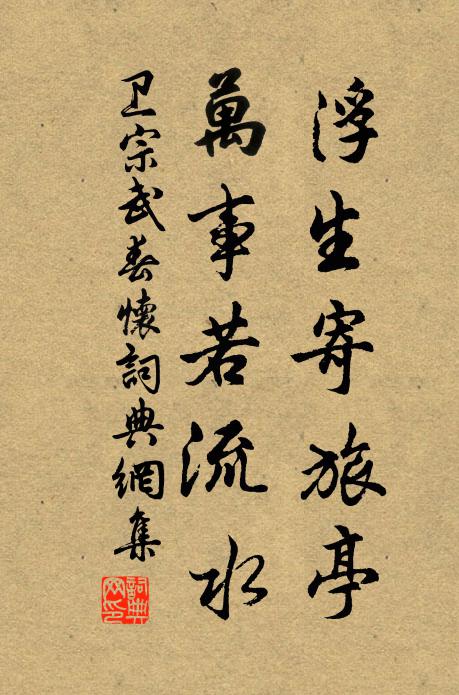 浮生寄旅亭
萬事若流水
卫宗武春懷詞典網集
詞典
网印